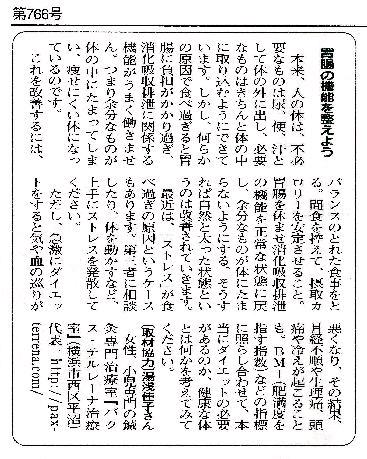 第766号
胃腸の機能を整えよう
本来、人の体は、不必
要なものは尿、便、汗と
して体の外に出し、必要
なものはきちんと体の中
に取り込むようにできて
います。しかし、何らか
の原因で食べ過ぎると胃
腸に負担がかかり過ぎ、
消化吸収排泄に関係する
機能がうまく働きませ
ん。つまり余分なものが
体の中にたまってしま
い、痩せにくい体になっ
ているのです。
これを改善するには、
バランスのとれた食事をと
る。間食を控えて、摂取カ
ロリーを安定させること。
胃腸を休ませ消化吸収排泄
の機能を正常な状態に戻
し、余分なものが体にたま
らないようにする。そうす
れば自然と太った状態とい
うのは改善されていきます。
最近は、ストレスが食
べ過ぎの原因というケース
もあります。第三者に相談
したり、体を動かすなど、
上手にストレスを発散して
ください。
ただし、急激にダイエッ
トをすると気や血の巡りが
悪くなり、その結果、
月経不順や生理痛、頭
痛や冷えが起こること
も。BMI（肥満度を
指す指数）などの指標
に照らし合わせて、本
当にダイエットの必要
があるのか、健康な体
とは何かを考えてみて
ください。
【取材協力】湯浅佳子さん
女性、小児専門の鍼
灸専門治療室「パク
ス・テルレーナ治療
室」（横浜市西区平沼）
代表。http://pax-
terrena.com/